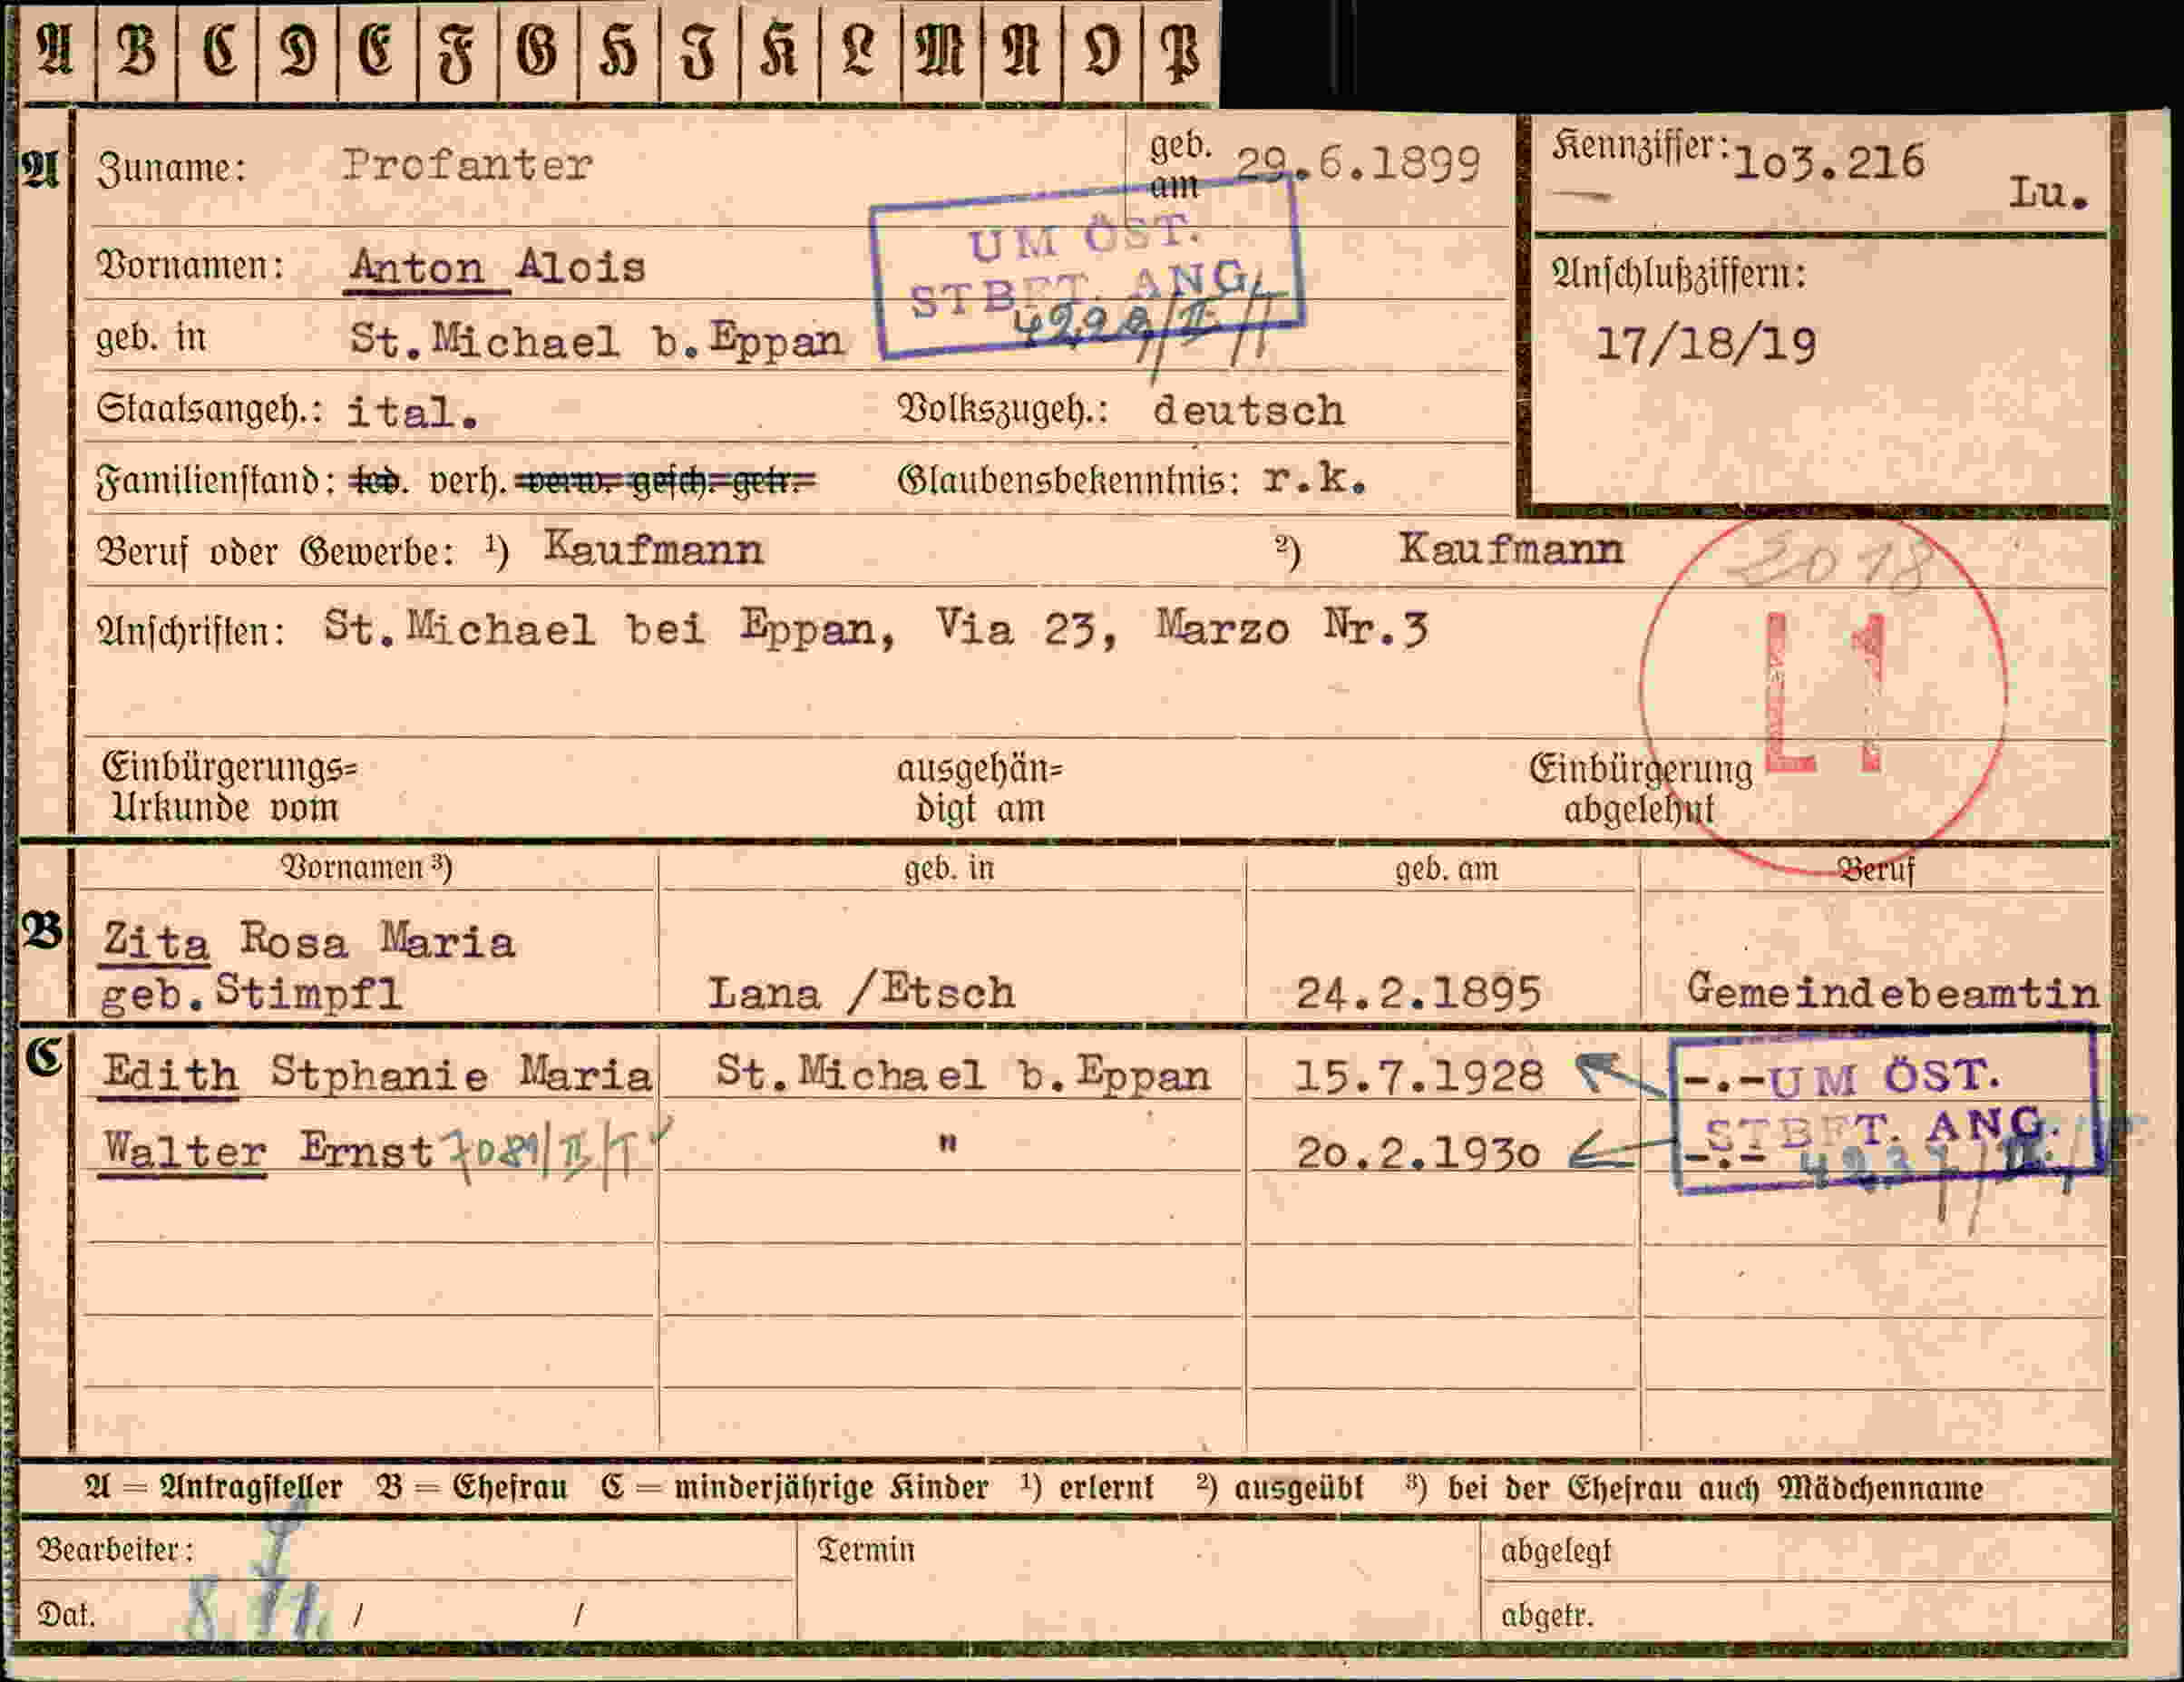 A B C D E F G H J K L M N O P
A Zuname: Profanter geb. am 29.6.1899 Kennziffer: 1o3.216 Lu.
UM ÖST.
STBFT. ANG.
Vornamen: Anton Alois Anschlußziffern:
geb. in St.Michael b.Eppan 17/18/19
Staatsangeh.: ital. Volkszugeh.: deutsch
Familienstand: led. verh. verw. gesch. getr. Glaubensbekenntnis: r.k.
Beruf oder Gewerbe: ¹) Kaufmann ²) Kaufmann
2018
Anschriften: St.Michael bei Eppan, Via 23, Marzo Nr.3
L1
Einbürgerungs= ausgehän= Einbürgerung
Urkunde vom digt am abgelehnt
Vornamen ³) geb. in geb. am Beruf
B Zita Rosa Maria
geb.Stimpfl Lana /Etsch 24.2.1895 Gemeindebeamtin
C Edith Stphanie Maria St.Michael b.Eppan 15.7.1928 -.- UM ÖST.
STBFT. ANG.
Walter Ernst " 2o.2.193o -.-
A = Antragsteller B = Ehefrau C = minderjährige Kinder ¹) erlernt ²) ausgeübt ³) bei der Ehefrau auch Mädchenname
Bearbeiter: Termin abgelegt
Dat. / / abgetr.